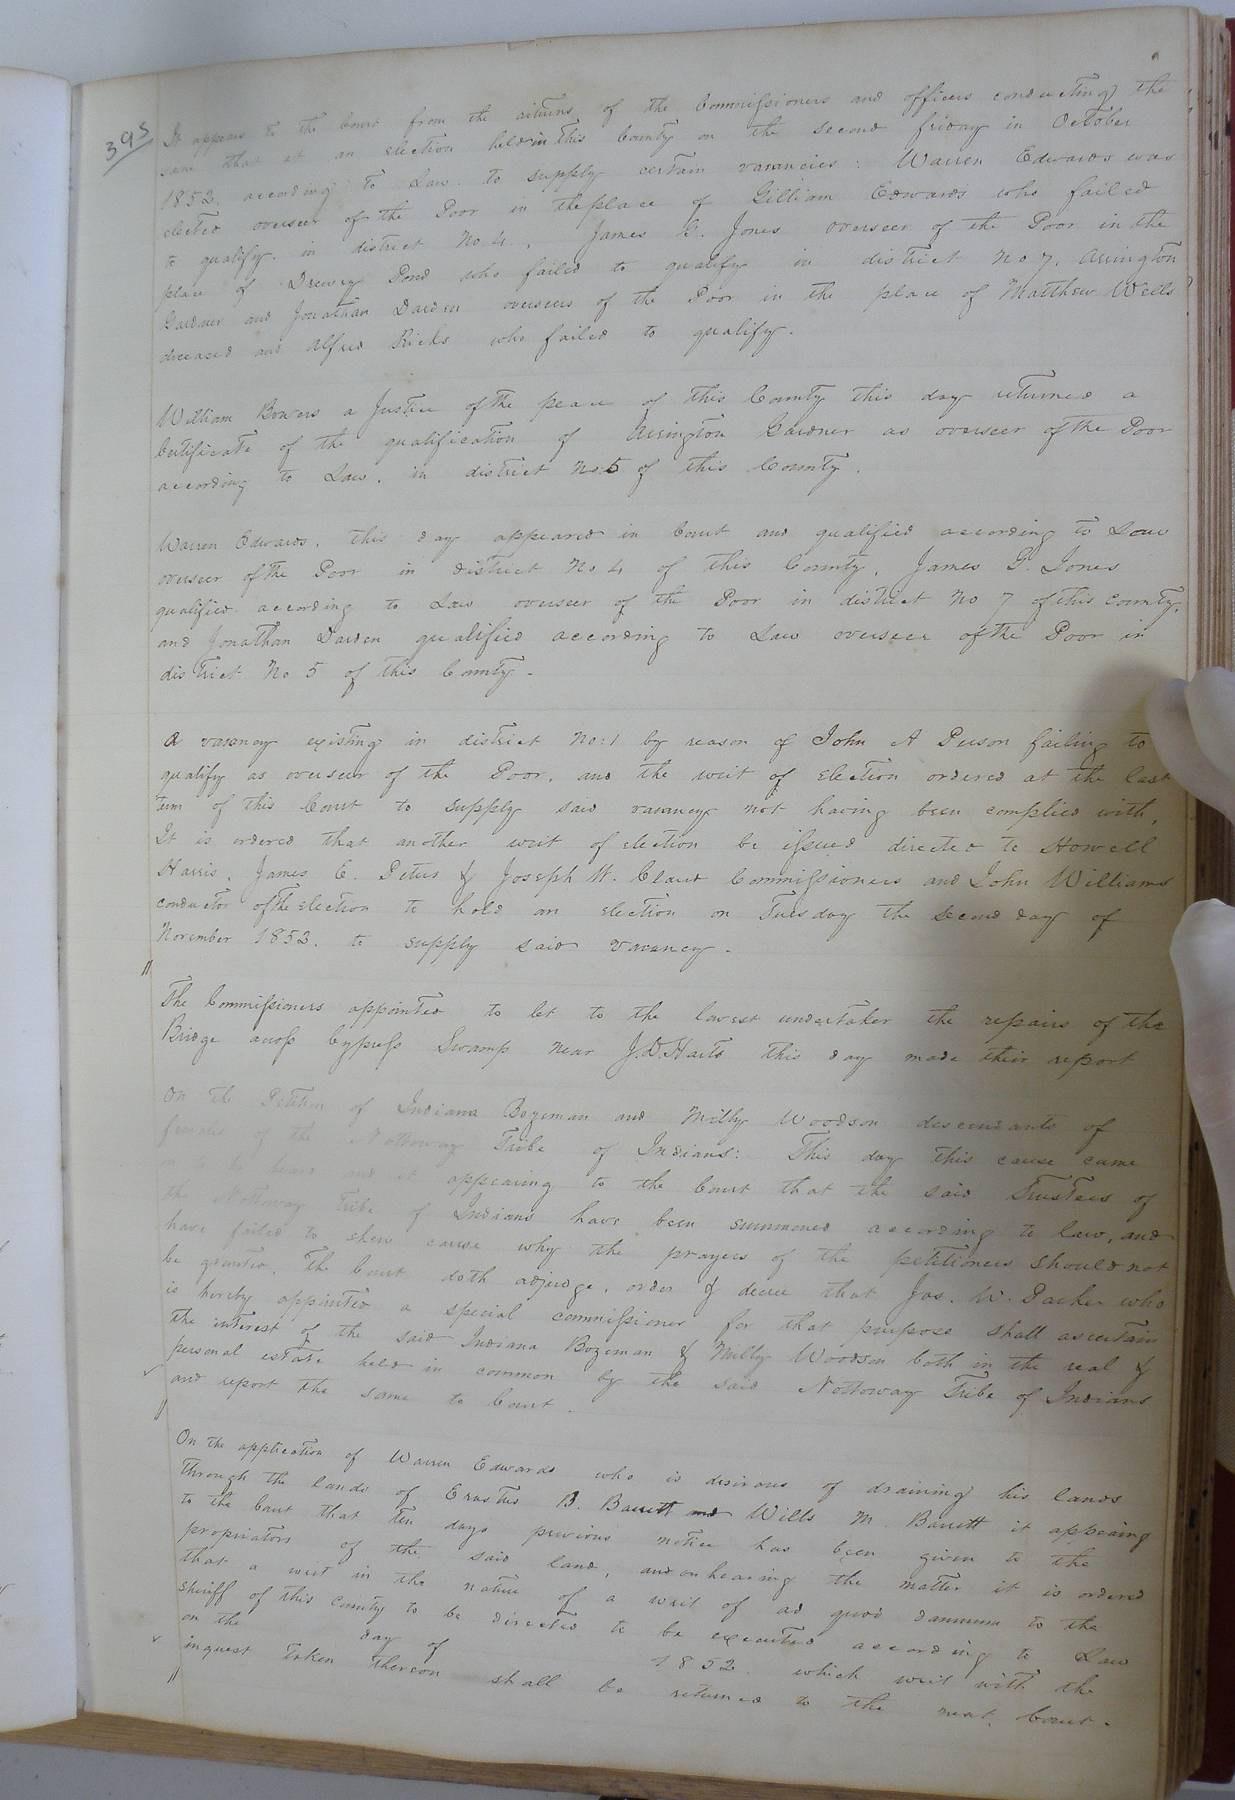 395
It appears to the Court from the returns of the Commissioners and officers conducting the
same that at an election held in this County on the second friday in October
1852. according to Law. to supply certain vacancies: Warren Edwards was
elected overseer of the Poor in the place of Gilliam Edwards who failed
to qualify. in district No. 4., James G. Jones overseer of the Poor in the
place of Drewry Pond who failed to qualify in district No 7. Arrington
Gardner and Jonathan Darden overseers of the Poor in the place of Matthew Wells
deceased and Alfred Ricks who failed to qualify.
William Bowers a Justice of the peace of this County this day returned a
Certificate of the qualification of Arrington Gardner as overseer of the Poor
according to Law. in district No 5 of this County.
Warren Edwards. this day appeared in Court and qualified according to Law
overseer of the Poor in district No 4 of this County. James G. Jones
qualified according to Law overseer of the Poor in district No 7 of this County,
and Jonathan Darden qualified according to Law overseer of the Poor in
district No 5 of this County.
A vacancy existing in district No: 1 by reason of John A Person failing to
qualify as overseer of the Poor, and the writ of election ordered at the last
term of this Court to supply said vacancy not having been complied with,
It is ordered that another writ of election be issued directed to Howell
Harris, James E. Peters & Joseph W. Claud Commissioners and John Williams
conductor of the election to hold an election on Tuesday the second day of
November 1852. to supply said vacancy.
The Commissioners appointed to let to the lowest undertaker the repairs of the
Bridge across Cypress Swamp near J. D. Harts this day made their report
On the Petition of Indiana Bozeman and Milly Woodson descendants of
females of the Nottoway Tribe of Indians: This day this cause came
on to be heard and it appearing to the Court that the said Trustees of
the Nottoway Tribe of Indians have been summoned according to law, and
have failed to shew cause why the prayers of the petitioners should not
be granted. The Court doth adjudge, order & decree that Jos. W. Parker who
is hereby appointed a special commissioner for that purpose shall ascertain
the interest of the said Indiana Bozeman & Milly Woodson both in the real &
personal estate held in common by the said Nottoway Tribe of Indians
and report the same to Court.
On the application of Warren Edwards who is desirous of draining his lands
through the lands of Erastus B. Barrett and Wills M. Barrett it appearing
to the Court that ten days previous notice has been given to the
propriators of the said land, and on hearing the matter it is ordered
that a writ in the nature of a writ of ad quod damnum to the
sheriff of this County to be directed to be executed according to Law
on the day of 1852. which writ with the
inquest taken thereon shall be returned to the next Court.